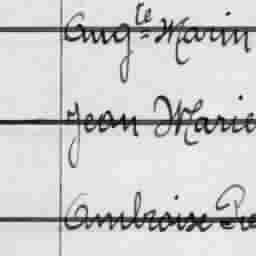 Aug^te Marin
Jean Marie
Ambroise